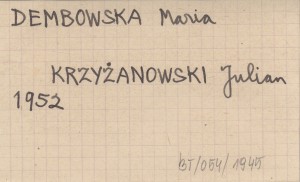 DEMBOWSKA Maria
KRZYŻANOWSKI Julian
1952
BT/054/1945